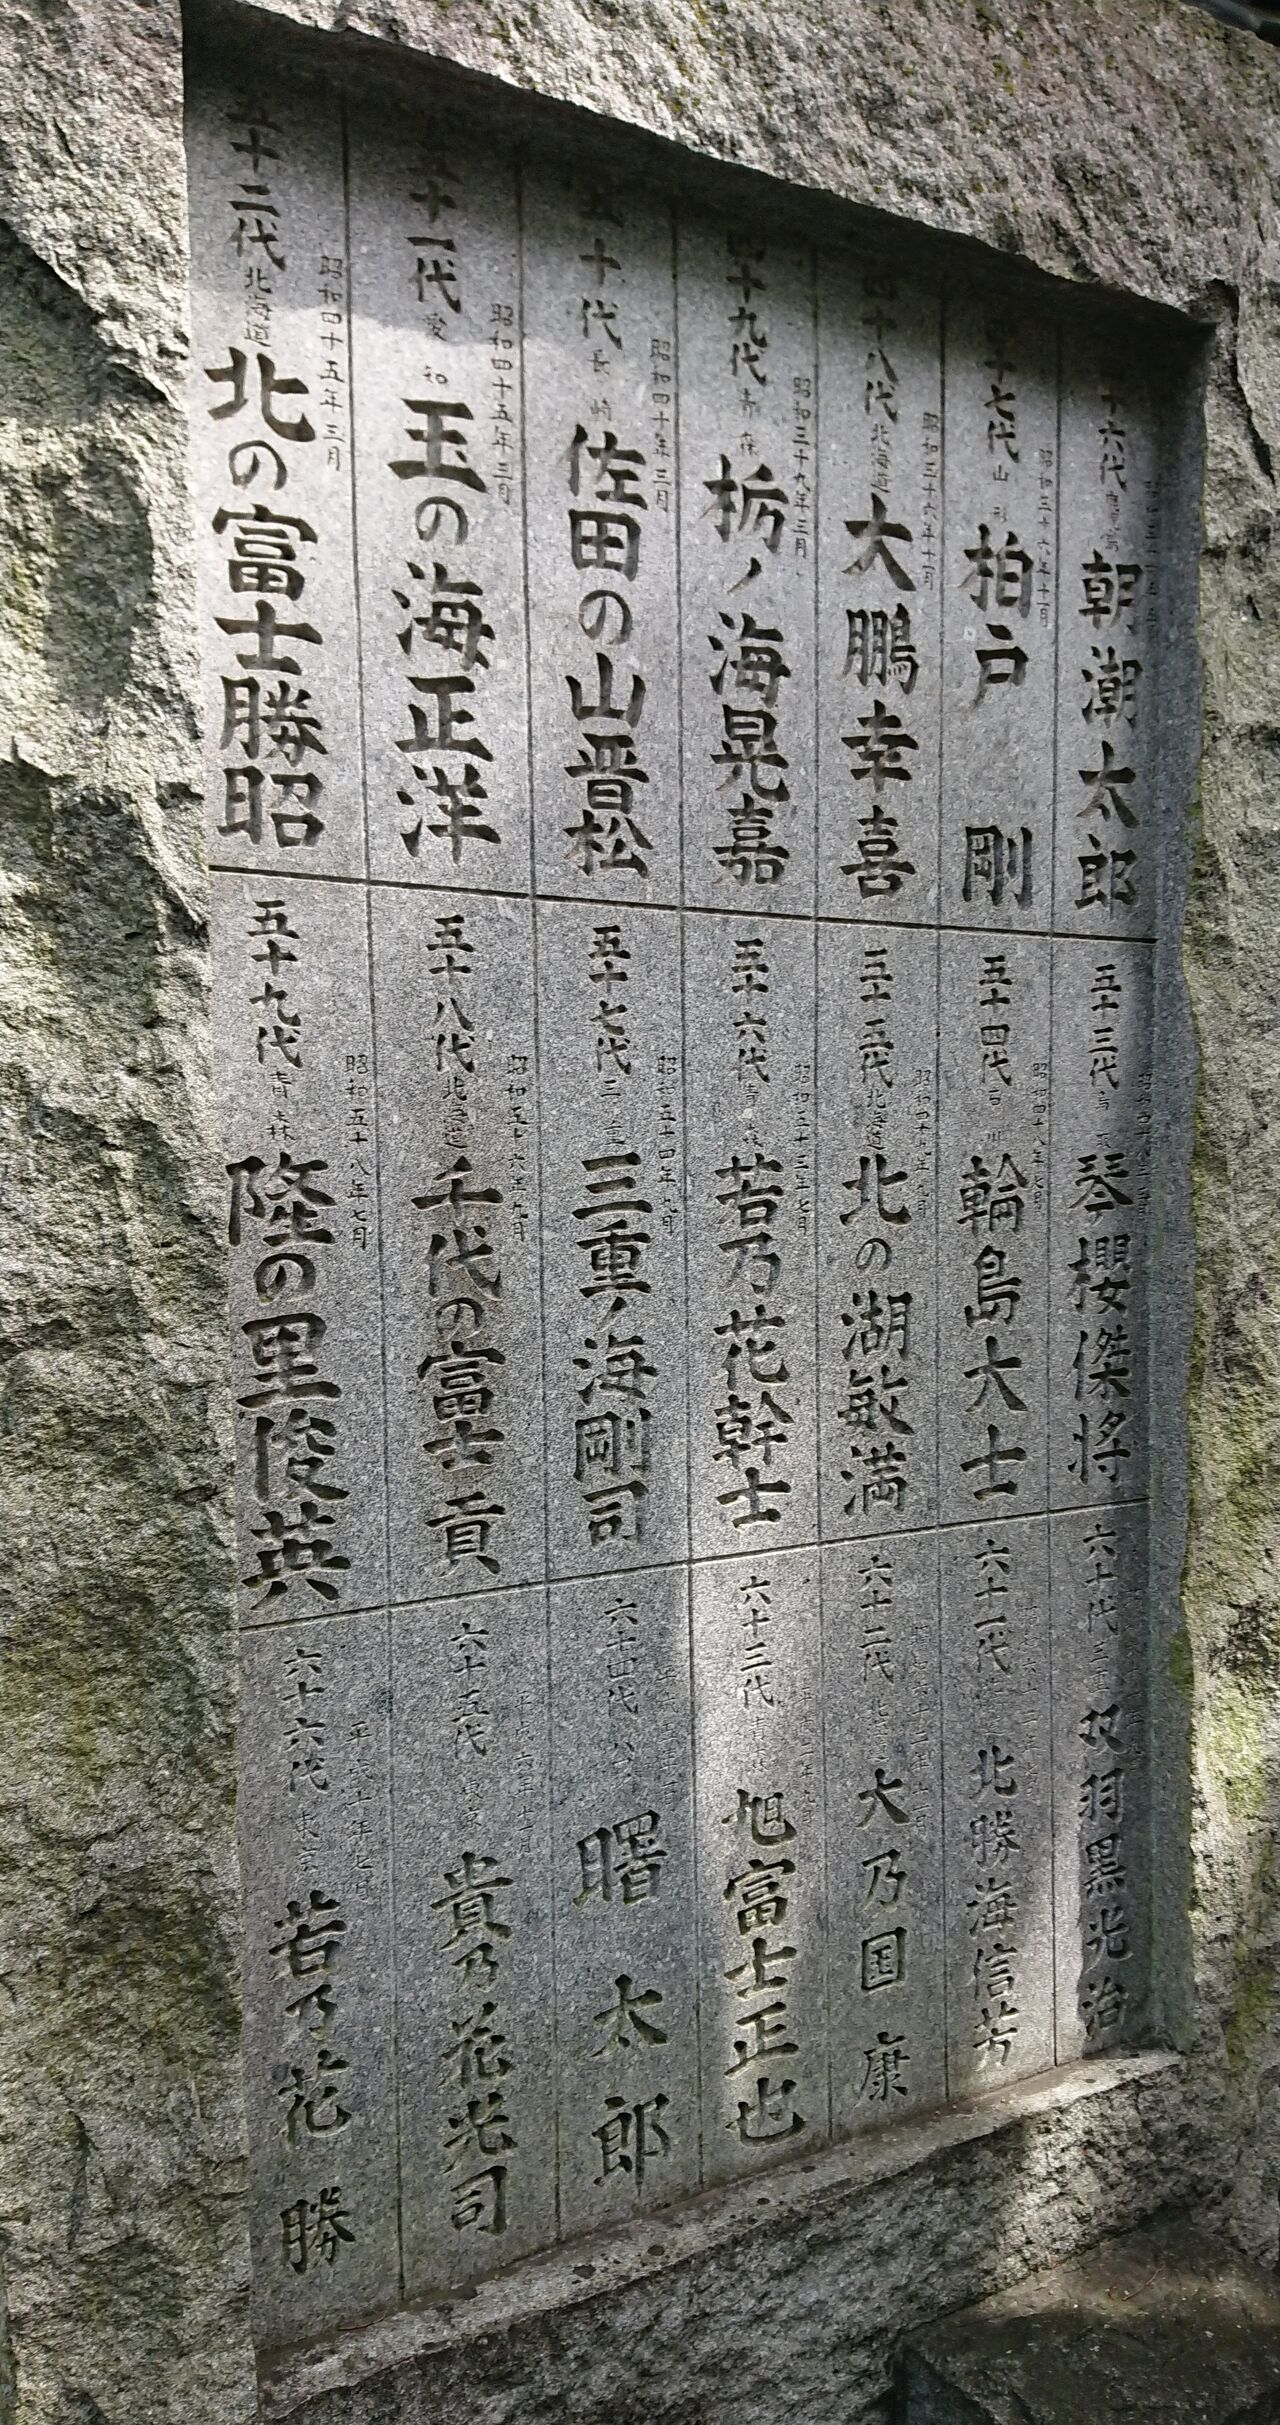 十六代
朝潮太郎
昭和三十六年十一月
四十七代 山形
柏戸 剛
昭和三十六年十一月
四十八代 北海道
大鵬幸喜
昭和三十九年三月
四十九代 青森
栃ノ海晃嘉
昭和四十年三月
五十代 長崎
佐田の山晋松
昭和四十五年三月
五十一代 愛知
玉の海正洋
昭和四十五年三月
五十二代 北海道
北の富士勝昭
五十三代
琴櫻傑将
昭和四十八年七月
五十四代 石川
輪島大士
五十五代 北海道
北の湖敏満
昭和五十三年七月
五十六代 青森
若乃花幹士
昭和五十四年九月
五十七代 三重
三重ノ海剛司
昭和五十六年九月
五十八代 北海道
千代の富士 貢
昭和五十八年七月
五十九代 青森
隆の里俊英
六十代 三重
双羽黒光治
六十一代
北勝海信芳
六十二代
大乃国 康
六十三代 青森
旭富士正也
六十四代
曙 太郎
平成六年十一月
六十五代 東京
貴乃花光司
平成十年七月
六十六代 東京
若乃花 勝